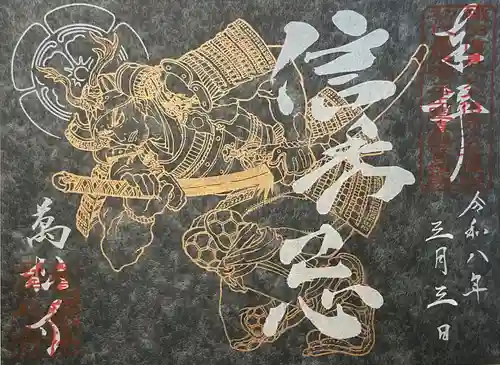 奉拝
信秀忌
令和八年
三月三日
萬松寺